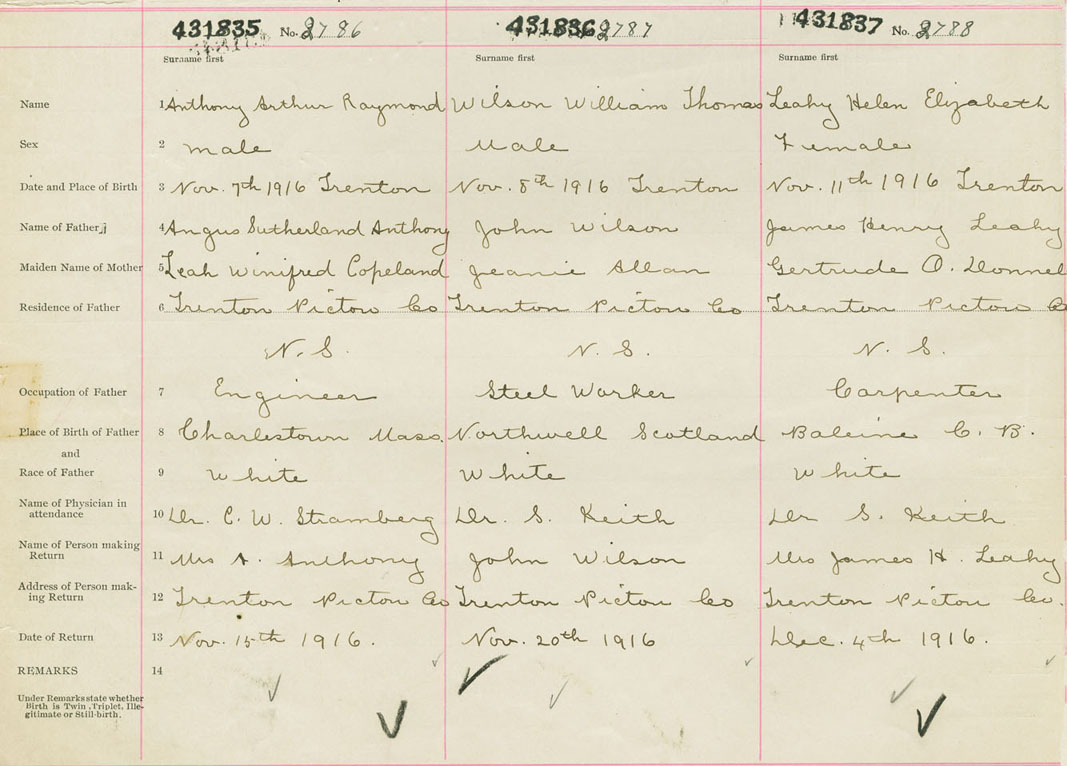 431835 No. 2786 431836 2787 431837 No. 2788
Surname first Surname first Surname first
Name 1 Anthony Arthur Raymond Wilson William Thomas Leahy Helen Elizabeth
Sex 2 Male Male Female
Date and Place of Birth 3 Nov. 7th 1916 Trenton Nov. 8th 1916 Trenton Nov. 11th 1916 Trenton
Name of Father 4 Angus Sutherland Anthony John Wilson James Henry Leahy
Maiden Name of Mother 5 Leah Winifred Copeland Jeanie Allan Gertrude O. Donnel
Residence of Father 6 Trenton Pictou Co Trenton Pictou Co Trenton Pictou Co
N. S. N. S. N. S.
Occupation of Father 7 Engineer Steel Worker Carpenter
Place of Birth of Father 8 Charlestown Mass. Northwell Scotland Baleine C. B.
and
Race of Father 9 White White White
Name of Physician in
attendance 10 Dr. C. W. Stramberg Dr. S. Keith Dr S. Keith
Name of Person making
Return 11 Mrs A. Anthony John Wilson Mrs James H. Leahy
Address of Person mak-
ing Return 12 Trenton Pictou Co Trenton Pictou Co Trenton Pictou Co.
Date of Return 13 Nov. 15th 1916. Nov. 20th 1916 Dec. 4th 1916.
REMARKS 14
Under Remarks state whether
Birth is Twin, Triplet, Ille-
gitimate or Still-birth.